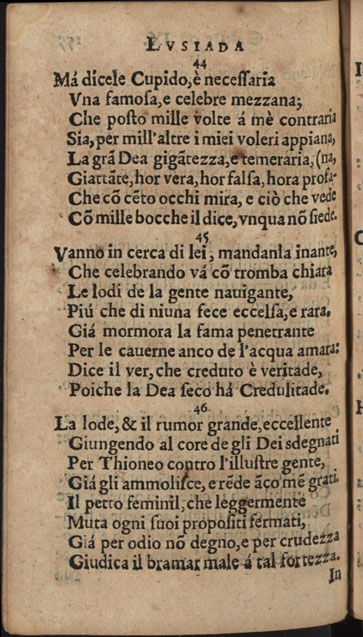 LVSIADA
44
Má dicele Cupido, è necessaria
Vna famosa, e celebre mezzana;
Che posto mille volte á mè contraria
Sia, per mill'altre i miei voleri appiana,
La grã Dea gigãtezza, e temeraria, (na,
Giattãte, hor vera, hor falsa, hora profa-
Che cõ cẽto occhi mira, e ciò che vede
Cõ mille bocche il dice, vnqua nõ siede.
45
Vanno in cerca di lei, mandanla inante,
Che celebrando vá cõ tromba chiara
Le lodi de la gente nauigante,
Piú che di niuna fece eccelsa, e rara.
Giá mormora la fama penetrante
Per le cauerne anco de l'acqua amara:
Dice il ver, che creduto è veritade,
Poiche la Dea seco há Credulitade.
46
La lode, & il rumor grande, eccellente
Giungendo al core de gli Dei sdegnati
Per Thioneo contro l'illustre gente,
Giá gli ammolisce, e rẽde ãco mẽ grati.
Il petto feminil, che leggermente
Muta ogni suoi propositi fermati,
Giá per odio nõ degno, e per crudezza
Giudica il bramar male á tal fortezza.
In